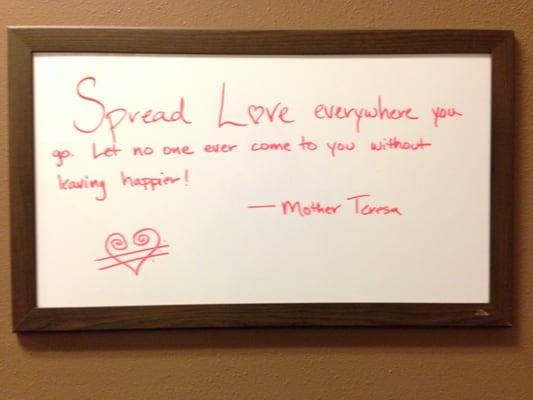 Spread Love everywhere you
go. Let no one ever come to you without
leaving happier!
— Mother Teresa